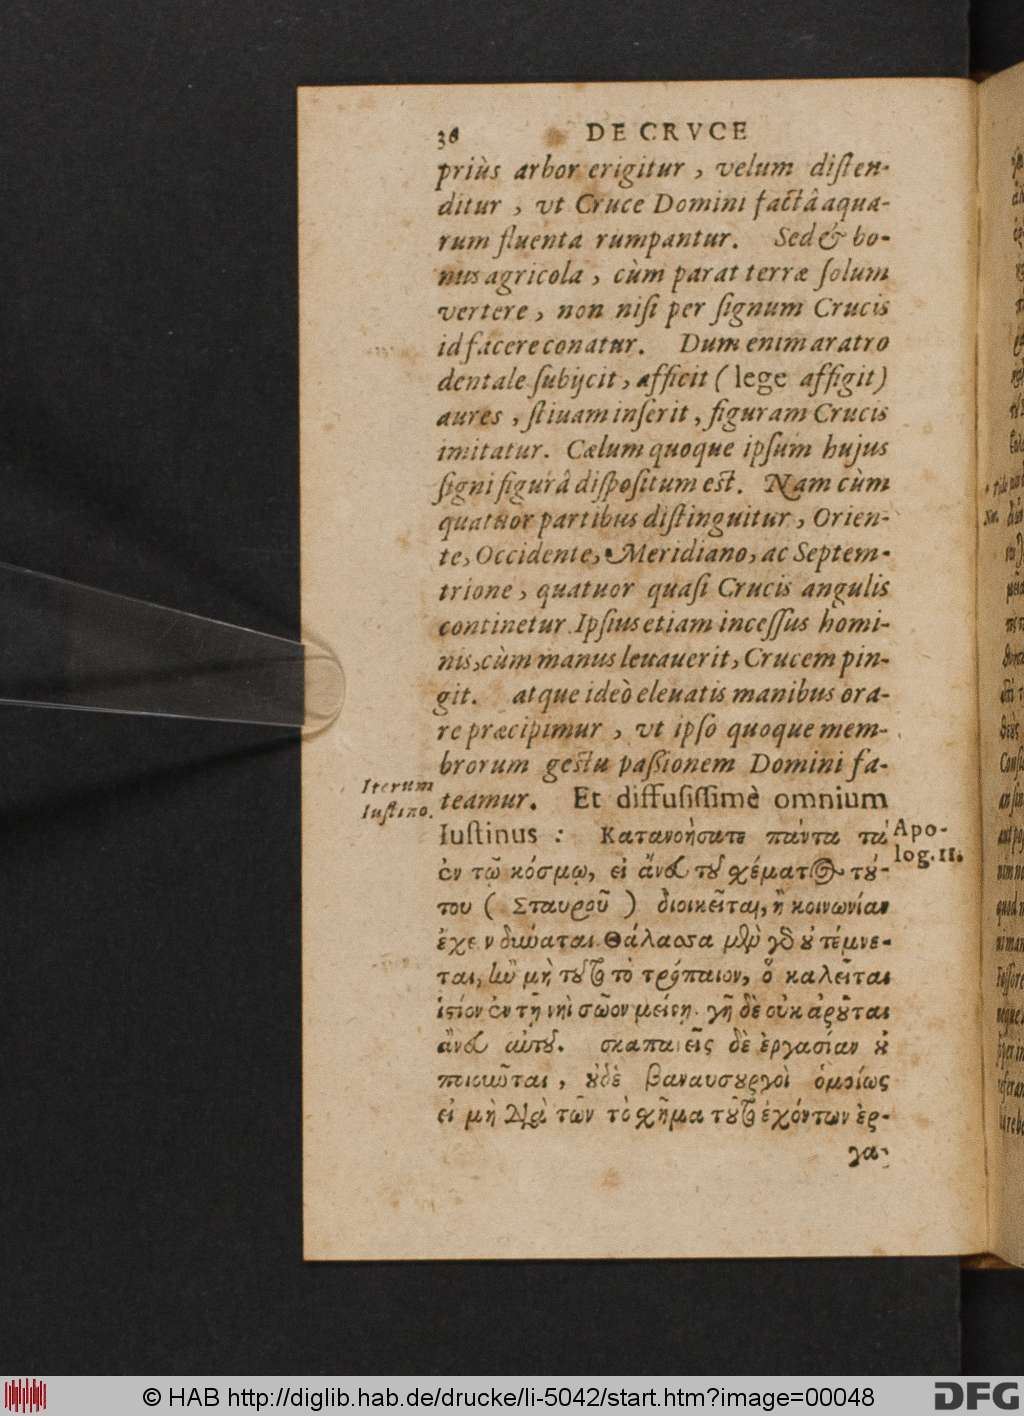 36 DE CRVCE
priùs arbor erigitur, velum disten-
ditur, vt Cruce Domini factâ aqua-
rum fluenta rumpantur. Sed & bo-
nus agricola, cùm parat terræ solum
vertere, non nisi per signum Crucis
id facere conatur. Dum enim aratro
dentale subijcit, afficit (lege affigit)
aures, stiuam inserit, figuram Crucis
imitatur. Cælum quoque ipsum hujus
signi figurâ dispositum est. Nam cùm
quatuor partibus distinguitur, Orien-
te, Occidente, Meridiano, ac Septem-
trione, quatuor quasi Crucis angulis
continetur. Ipsius etiam incessus homi-
nis, cùm manus leuauerit, Crucem pin-
git. atque ideò eleuatis manibus ora-
re præcipimur, vt ipso quoque mem-
brorum gestu passionem Domini fa-
Iterum
Iustino.
teamur. Et diffusissimè omnium
Iustinus: Κατανοήσατε πάντα τὰ
Apo-
log. II.
ἐν τῷ κόσμῳ, εἰ ἄνευ τοῦ σχέματος τού-
του (Σταυροῦ) διοικεῖται, ἢ κοινωνίαν
ἔχειν δύναται. Θάλασσα μὲν γὸ οὐ τέμνε-
ται, ἢν μὴ τοῦτο τὸ τρόπαιον, ὃ καλεῖται
ἱστίον ἐν τῇ νηὶ σῶον μείνῃ. γῆ δὲ οὐκ ἀροῦται
ἄνευ αὐτοῦ. σκαπανεῖς δὲ ἐργασίαν οὐ
ποιοῦται, οὐδὲ βαναυσουργοὶ ὁμοίως
εἰ μὴ διὰ τῶν τὸ σχῆμα τοῦτο ἐχόντων ἐρ-
γα-
© HAB http://diglib.hab.de/drucke/li-5042/start.htm?image=00048
DFG